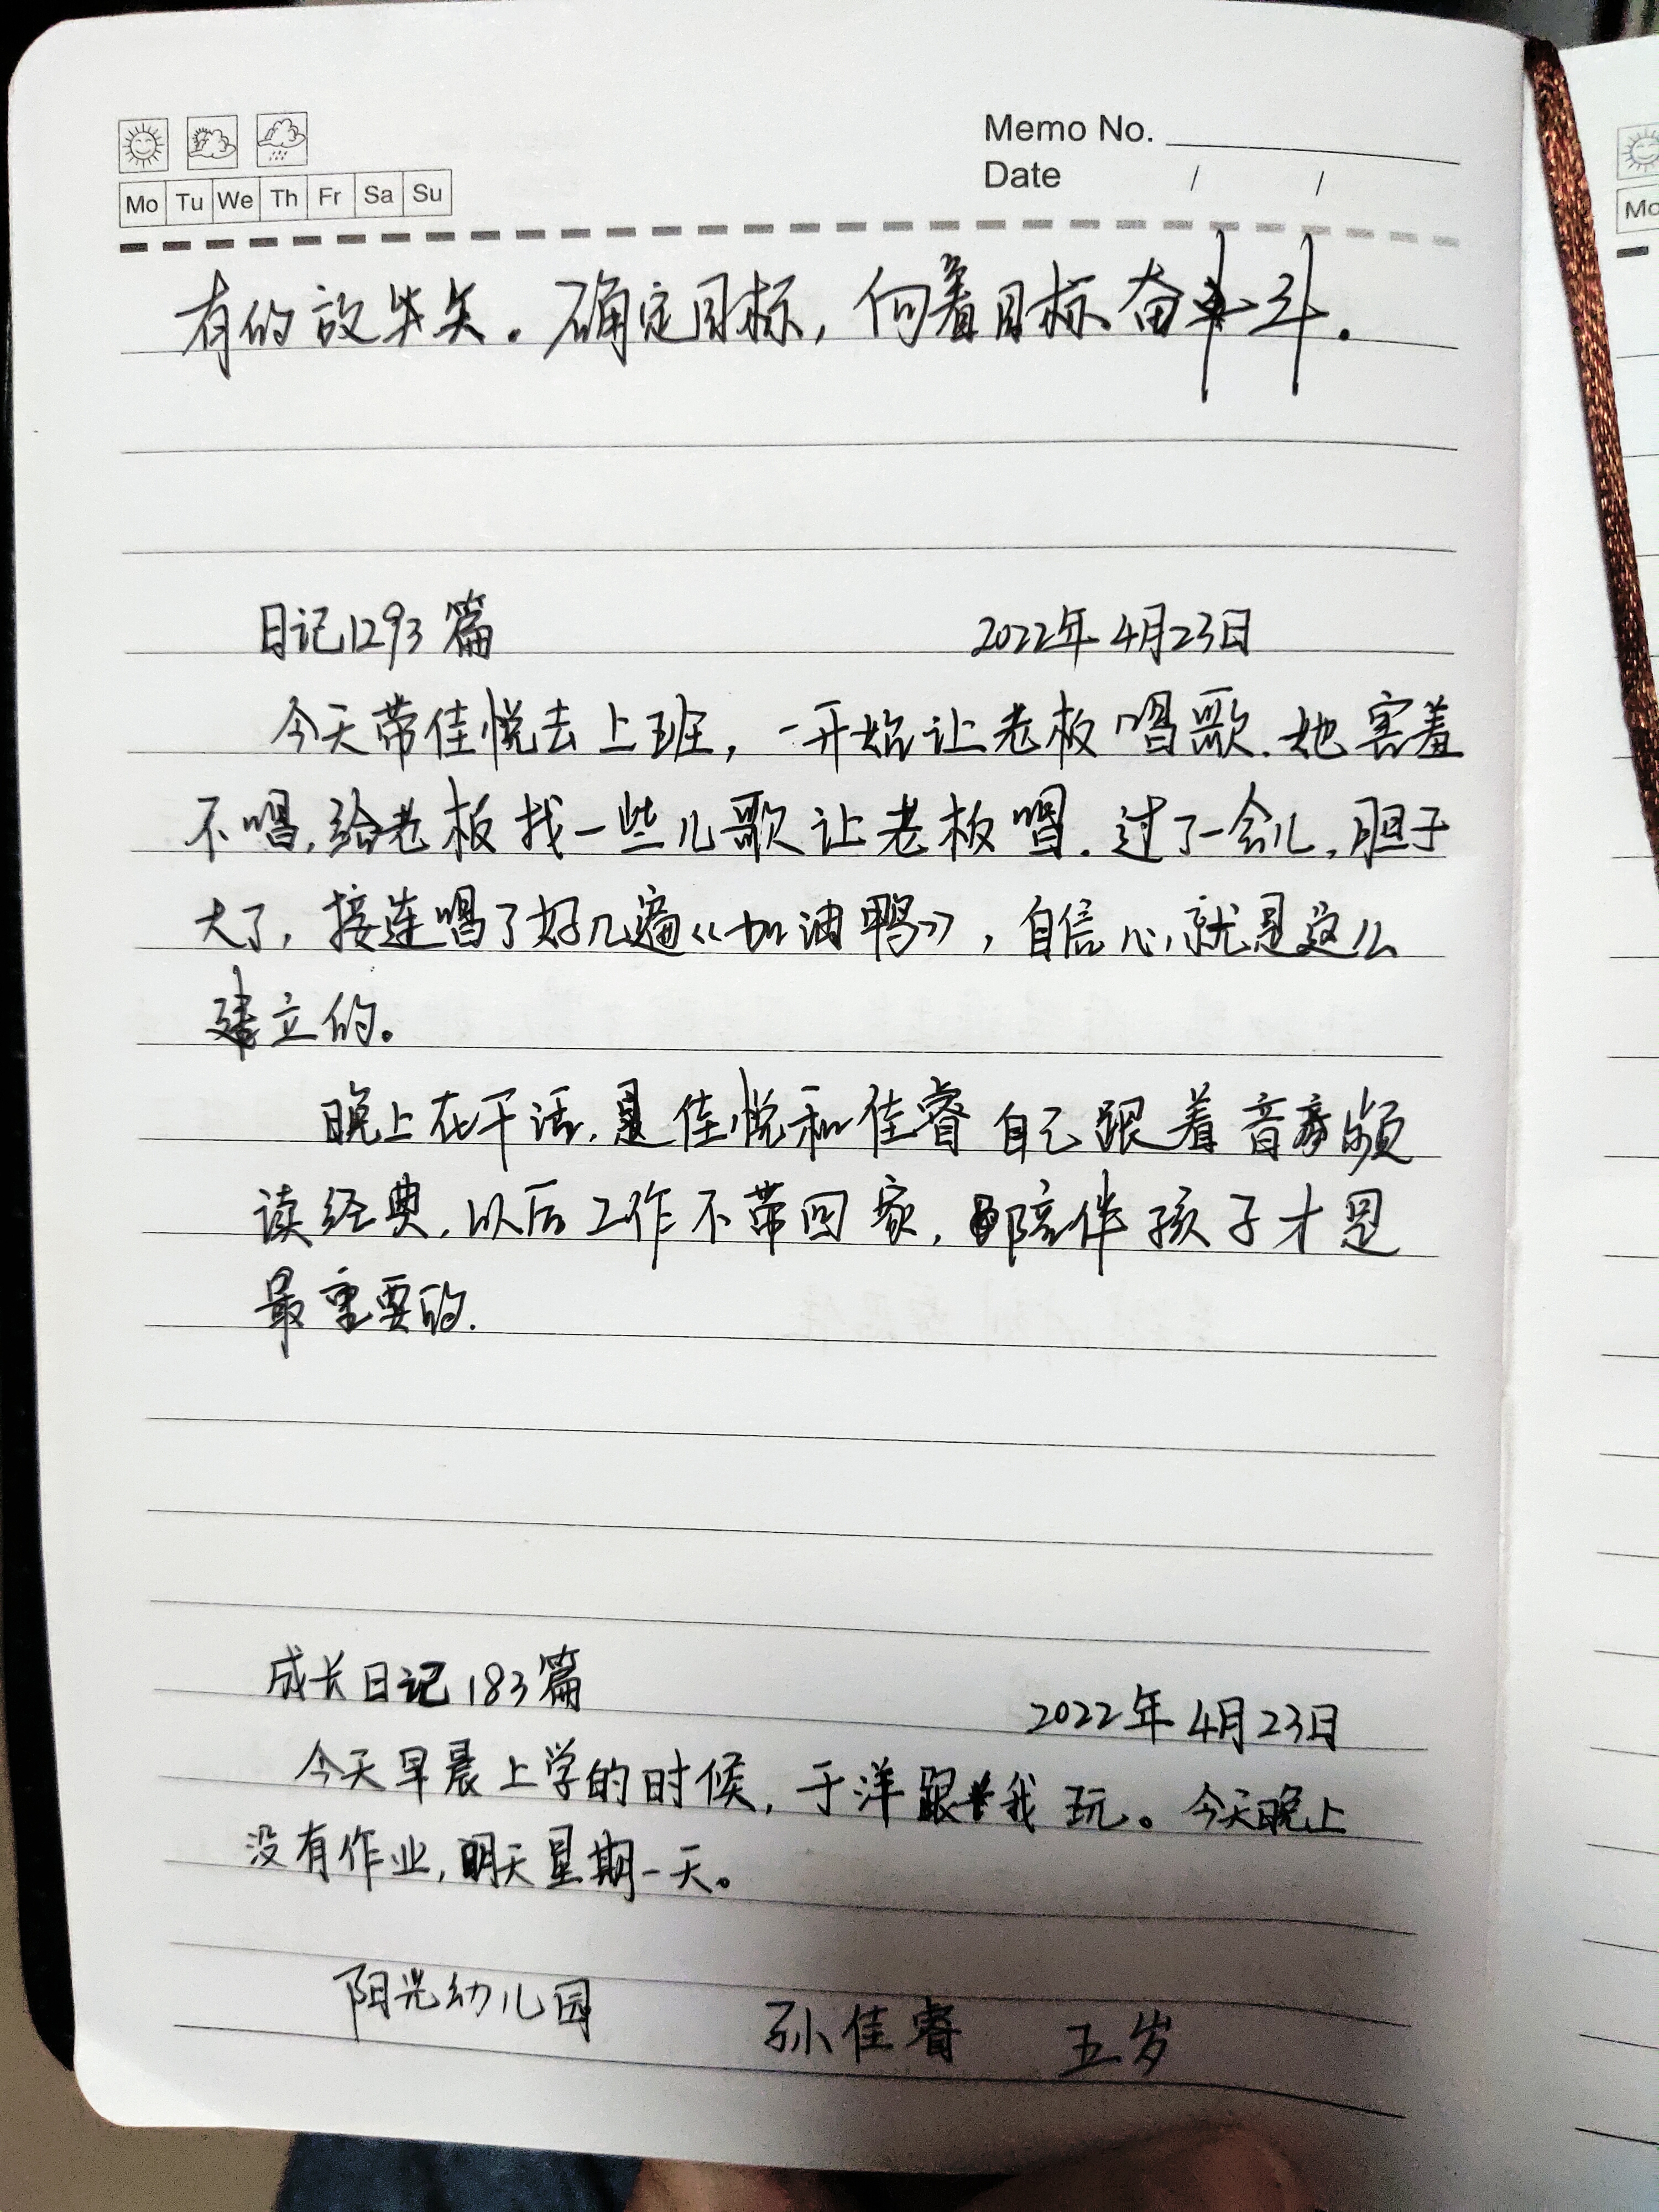 Memo No.
Date / /
Mo Tu We Th Fr Sa Su
有的放矢。确定目标，向着目标奋斗。
日记1293篇 2022年4月23日
今天带佳悦去上班，一开始让老板唱歌.她害羞
不唱,给老板找一些儿歌让老板唱.过了一会儿,胆子
大了，接连唱了好几遍《加油鸭》，自信心就是这么
建立的。
晚上在干活,是佳悦和佳睿自己跟着音频
读经典,以后工作不带回家,陪伴孩子才是
最重要的.
成长日记183篇 2022年4月23日
今天早晨上学的时候，于洋跟我玩。今天晚上
没有作业,明天星期一天。
阳光幼儿园 孙佳睿 五岁
Mo